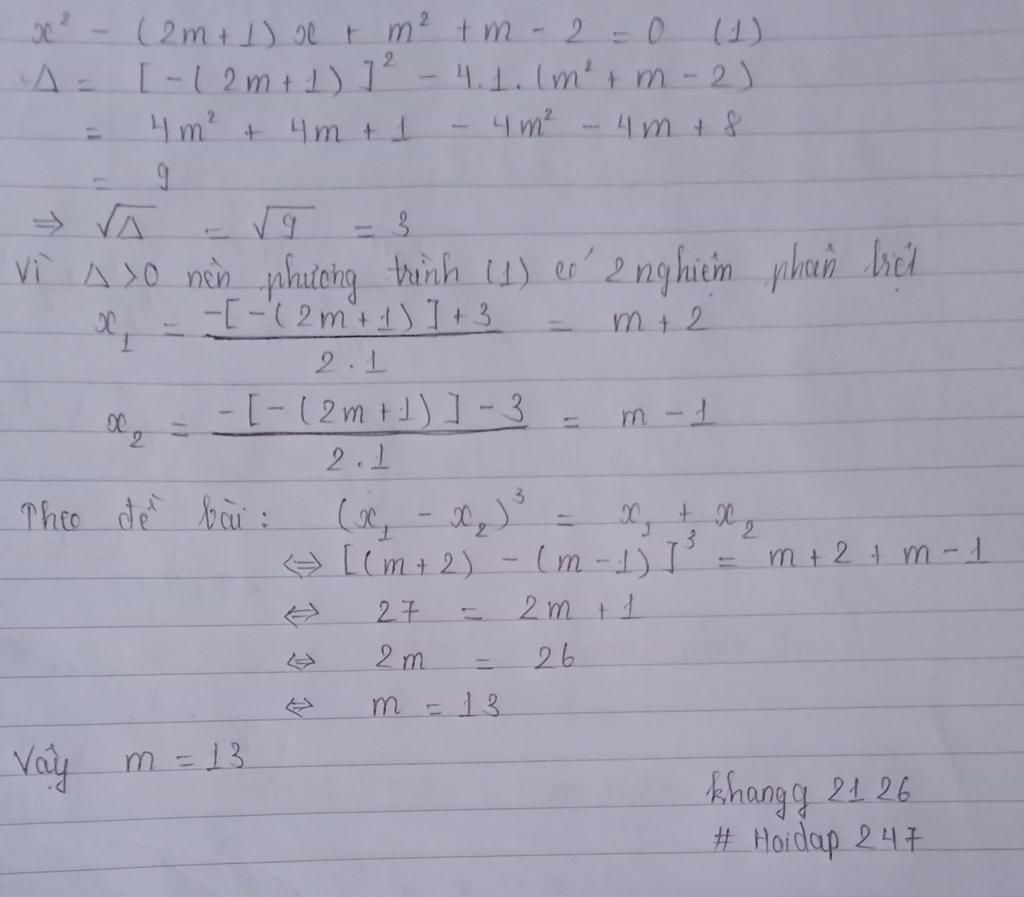 x² - (2m+1)x + m² + m - 2 = 0 (1)
Δ = [-(2m+1)]² - 4.1.(m² + m - 2)
= 4m² + 4m + 1 - 4m² - 4m + 8
= 9
⇒ √Δ = √9 = 3
Vì Δ>0 nên phương trình (1) có 2 nghiệm phân biệt
x₁ = (-[-(2m+1)]+3)/(2.1) = m+2
x₂ = (-[-(2m+1)]-3)/(2.1) = m-1
Theo đề bài: (x₁ - x₂)³ = x₁ + x₂
⇔ [(m+2) - (m-1)]³ = m+2+m-1
⇔ 27 = 2m+1
⇔ 2m = 26
⇔ m = 13
Vậy m = 13
khangg 2126
# Hoidap 247